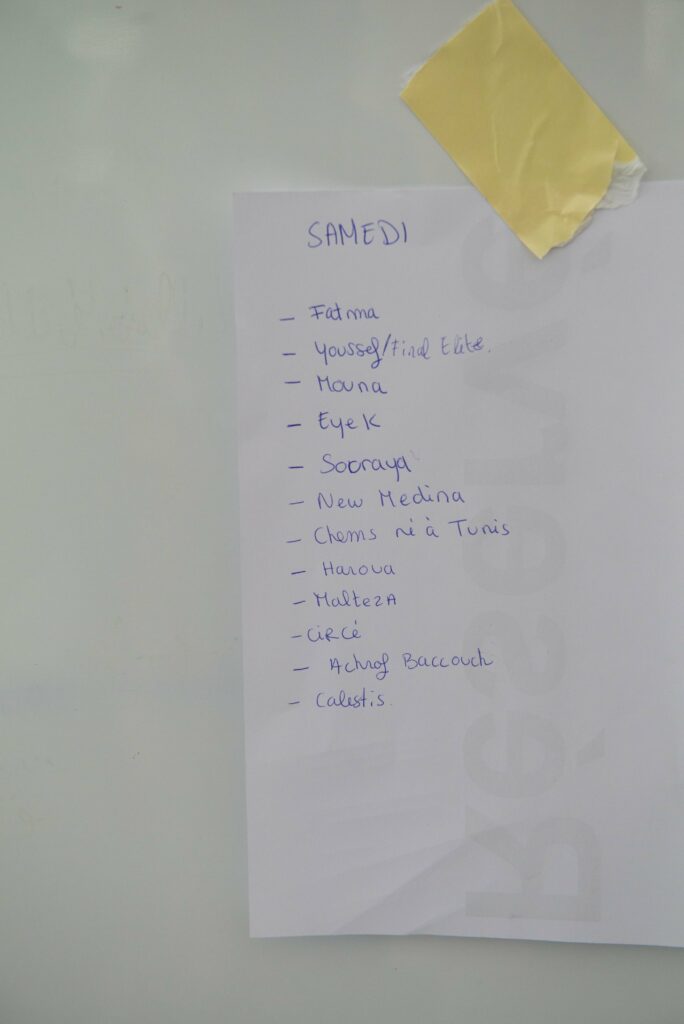 SAMEDI
– Fatma
– Youssef/Final Elite.
– Mouna
– Eye K
– Sooraya
– New Medina
– Chems né à Tunis
– Haroua
– MaltezA
– CiRCé
– Achraf Baccouch
– Calestis.